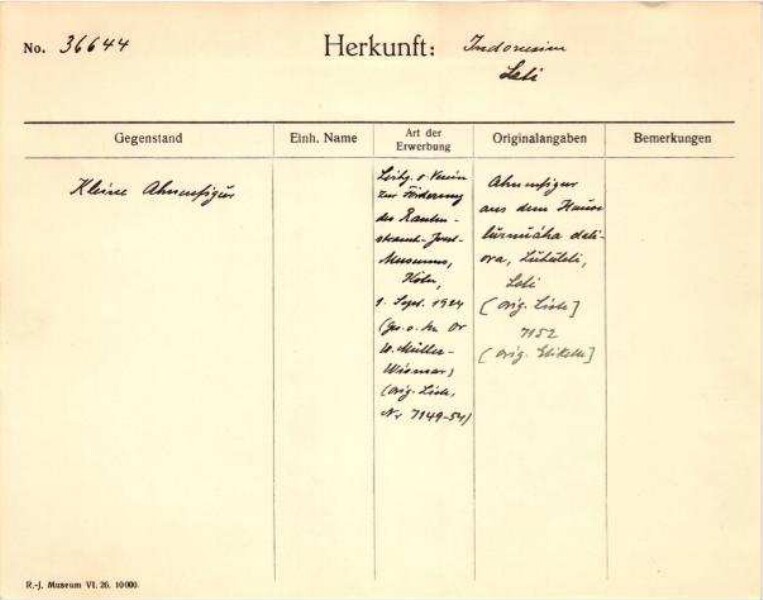 No. 36644 Herkunft: Indonesien
Leti
Gegenstand
Einh. Name
Art der
Erwerbung
Originalangaben
Bemerkungen
Kleine Ahnenfigur
Verein
zur Förderung
des Rauten-
strauch-Joest-
Museums,
Köln,
1. Sept. 1924
(ges. v. Dr
W. Müller-
Wismar)
(orig. Liste,
Nr 7149-54)
Ahnenfigur
aus dem Hause
Leti
[orig. Liste]
7152
[orig. Etikett]
R.-J. Museum VI. 26. 10000.